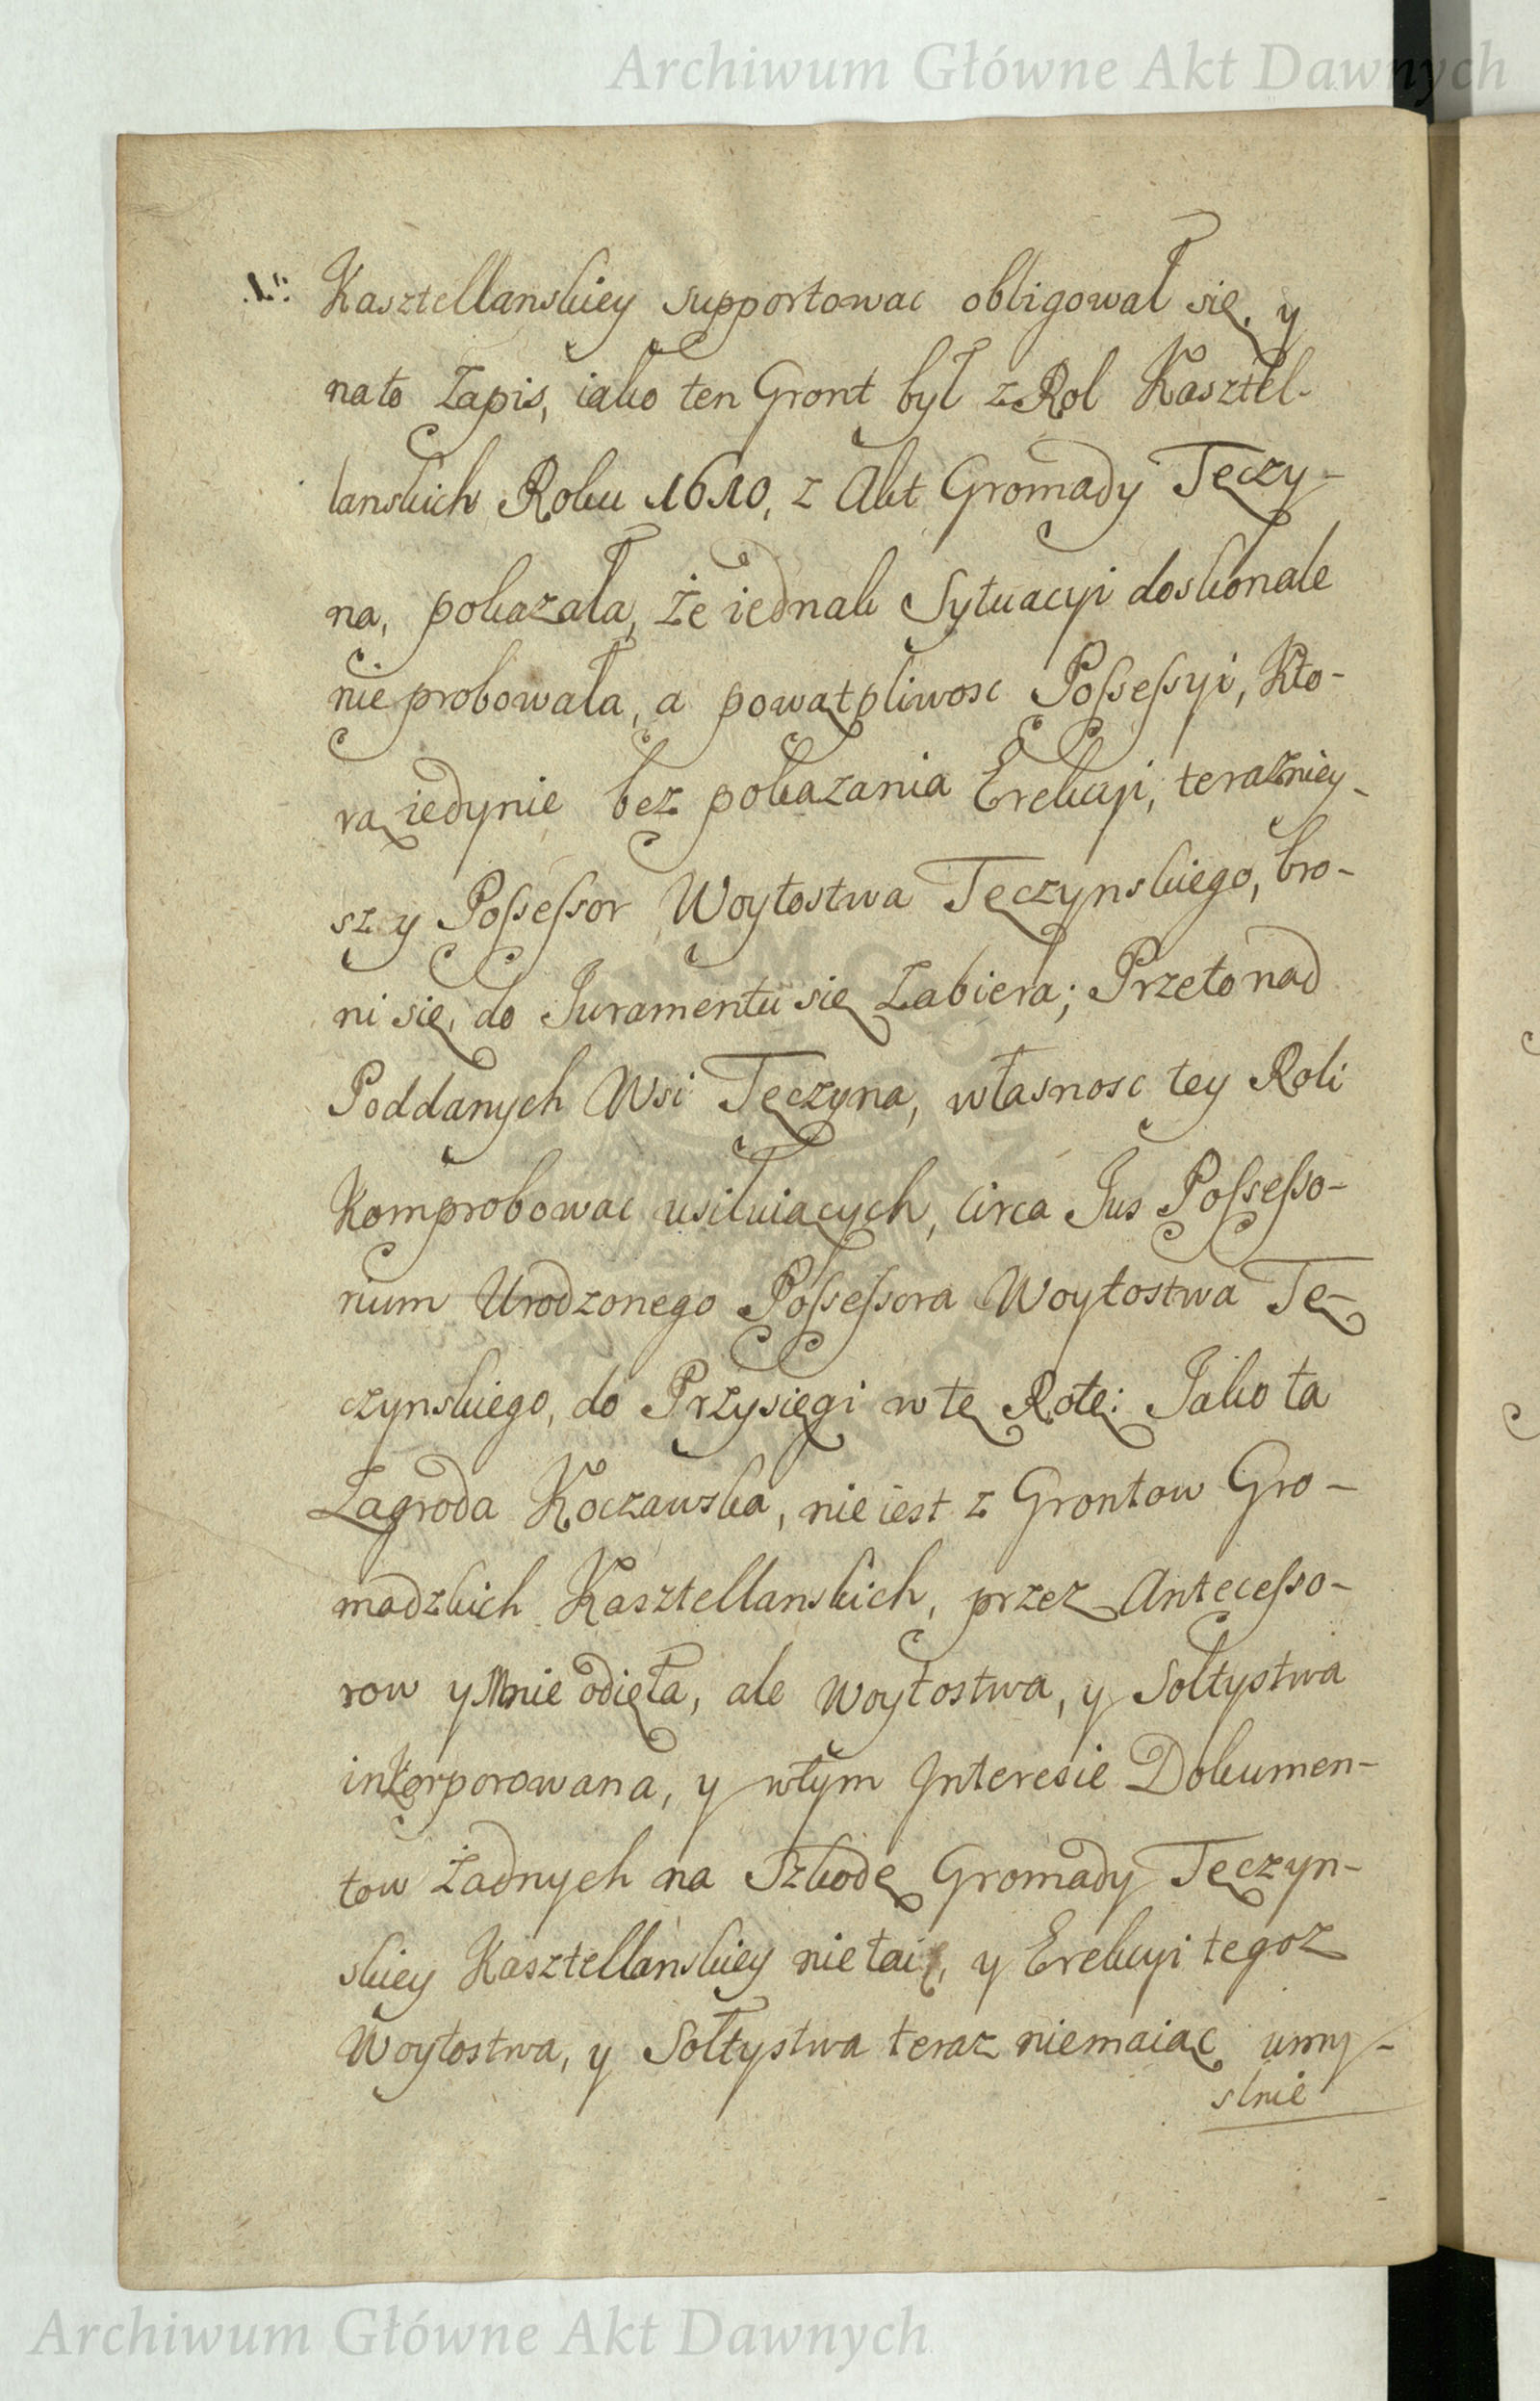 Archiwum Główne Akt Dawnych
Kasztellanskiey supportowac obligował się, y
nato Zapis, iako ten Gront był z Rol Kasztel-
lanskich Roku 1610, z Akt Gromady Tęczy-
na, pokazała, że iednak Sytuacyi doskonale
nie probowała, a powątpliwosc Possessyi, Kto-
rą iedynie bez pokazania Erekcyi, teraźniey-
szy Possessor Woytostwa Tęczynskiego, bro-
ni się, do Juramentu się Zabiera; Przeto nad
Poddanych Wsi Tęczyna, własnosc tey Roli
Komprobowac usiłuiących, circa Jus Possesso-
rium Urodzonego Possessora Woytostwa Tę-
czynskiego, do Przysięgi w tę Rotę: Jako ta
Zagroda Koczawska, nie iest z Grontow Gro-
madzkich Kasztellanskich, przez Antecesso-
row y Mnie odięta, ale Woytostwa, y Sołtystwa
inkorporowana, y w tym Interesie Dokumen-
tow Żadnych na Szkodę Gromady Tęczyn-
skiey Kasztellanskiey nie taię, y Erekcyi tegoz
Woytostwa, y Sołtystwa teraz niemaiąc umy-
slnie
Archiwum Główne Akt Dawnych